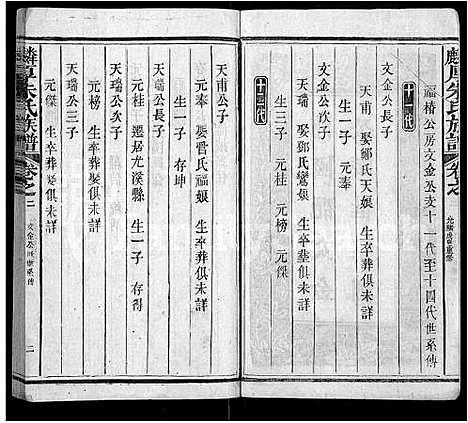 麟阜朱氏族譜 卷之
福椿公房文金公支十一代至十四代世系傳
十二代
文金公長子
天甫 娶鄭氏天娘 生卒葬俱未詳
生一子 元奉
文金公次子
天瑞 娶鄒氏鸞娘 生卒葬俱未詳
生三子 元桂 元榜 元傑
十三代
天甫公子
元奉 娶晋氏福娘 生卒葬俱未詳
生一子 存坤
天瑞公長子
元桂 遷居尤溪縣 生一子 存得
天瑞公次子
元榜 生卒葬娶嗣俱未詳
天瑞公三子
元傑 生卒葬娶嗣俱未詳
麟阜朱氏族譜 卷之二
文金公派世系傳
二